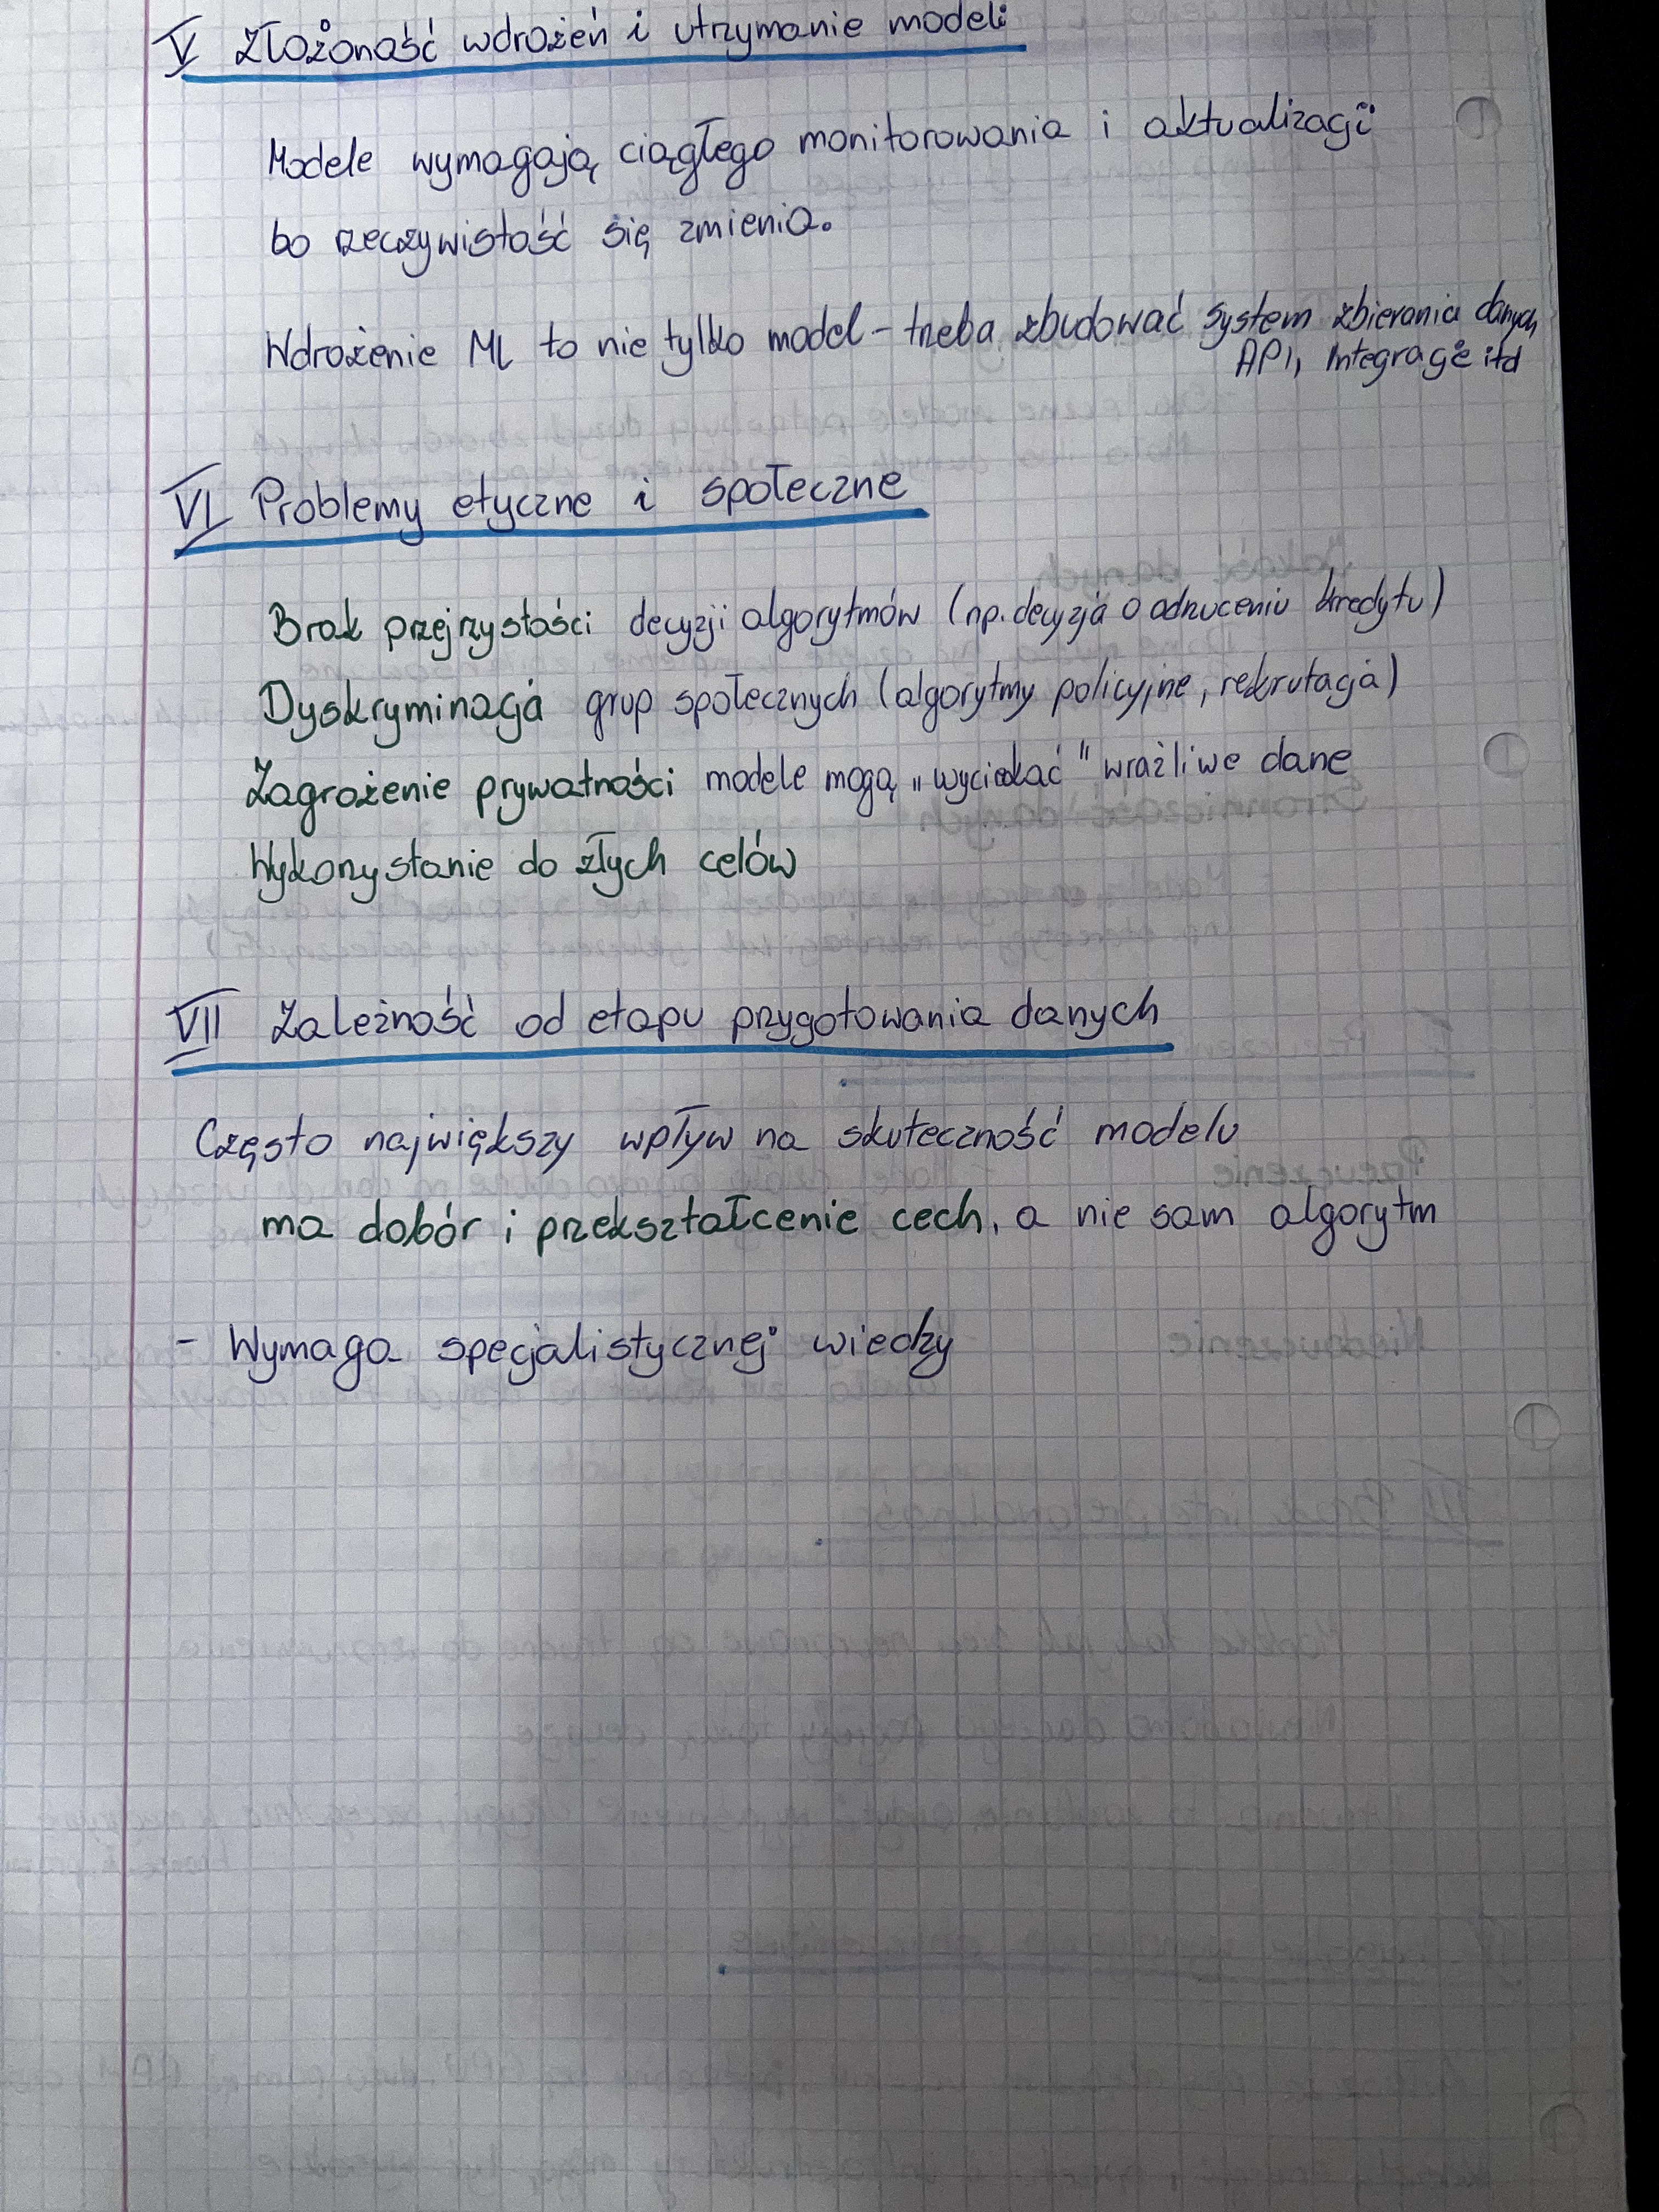 V Złożoność wdrożeń i utrzymanie modeli
Modele wymagają ciągłego monitorowania i aktualizacji
bo rzeczywistość się zmienia.
Wdrożenie ML to nie tylko model - trzeba zbudować system zbierania danych
API, integracje itd
VI Problemy etyczne i społeczne
Brak przejrzystości decyzji algorytmów (np. decyzja o odrzuceniu kredytu)
Dyskryminacja grup społecznych (algorytmy policyjne, rekrutacja)
Zagrożenie prywatności modele mogą „wyciekać" wrażliwe dane
Wykorzystanie do złych celów
VII Zależność od etapu przygotowania danych
Często największy wpływ na skuteczność modelu
ma dobór i przekształcenie cech, a nie sam algorytm
- Wymaga specjalistycznej wiedzy